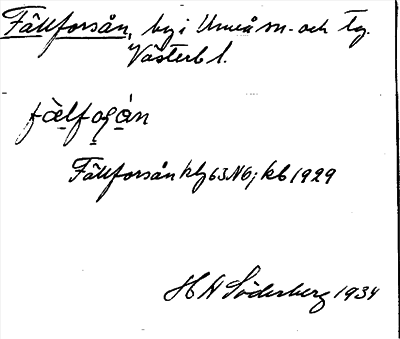 Fällforsån, by i Umeå sn. och tg.
Västerb l.
fälfogån
Fällforsån hlg 63 NO; kb 1929
H N Söderberg 1934